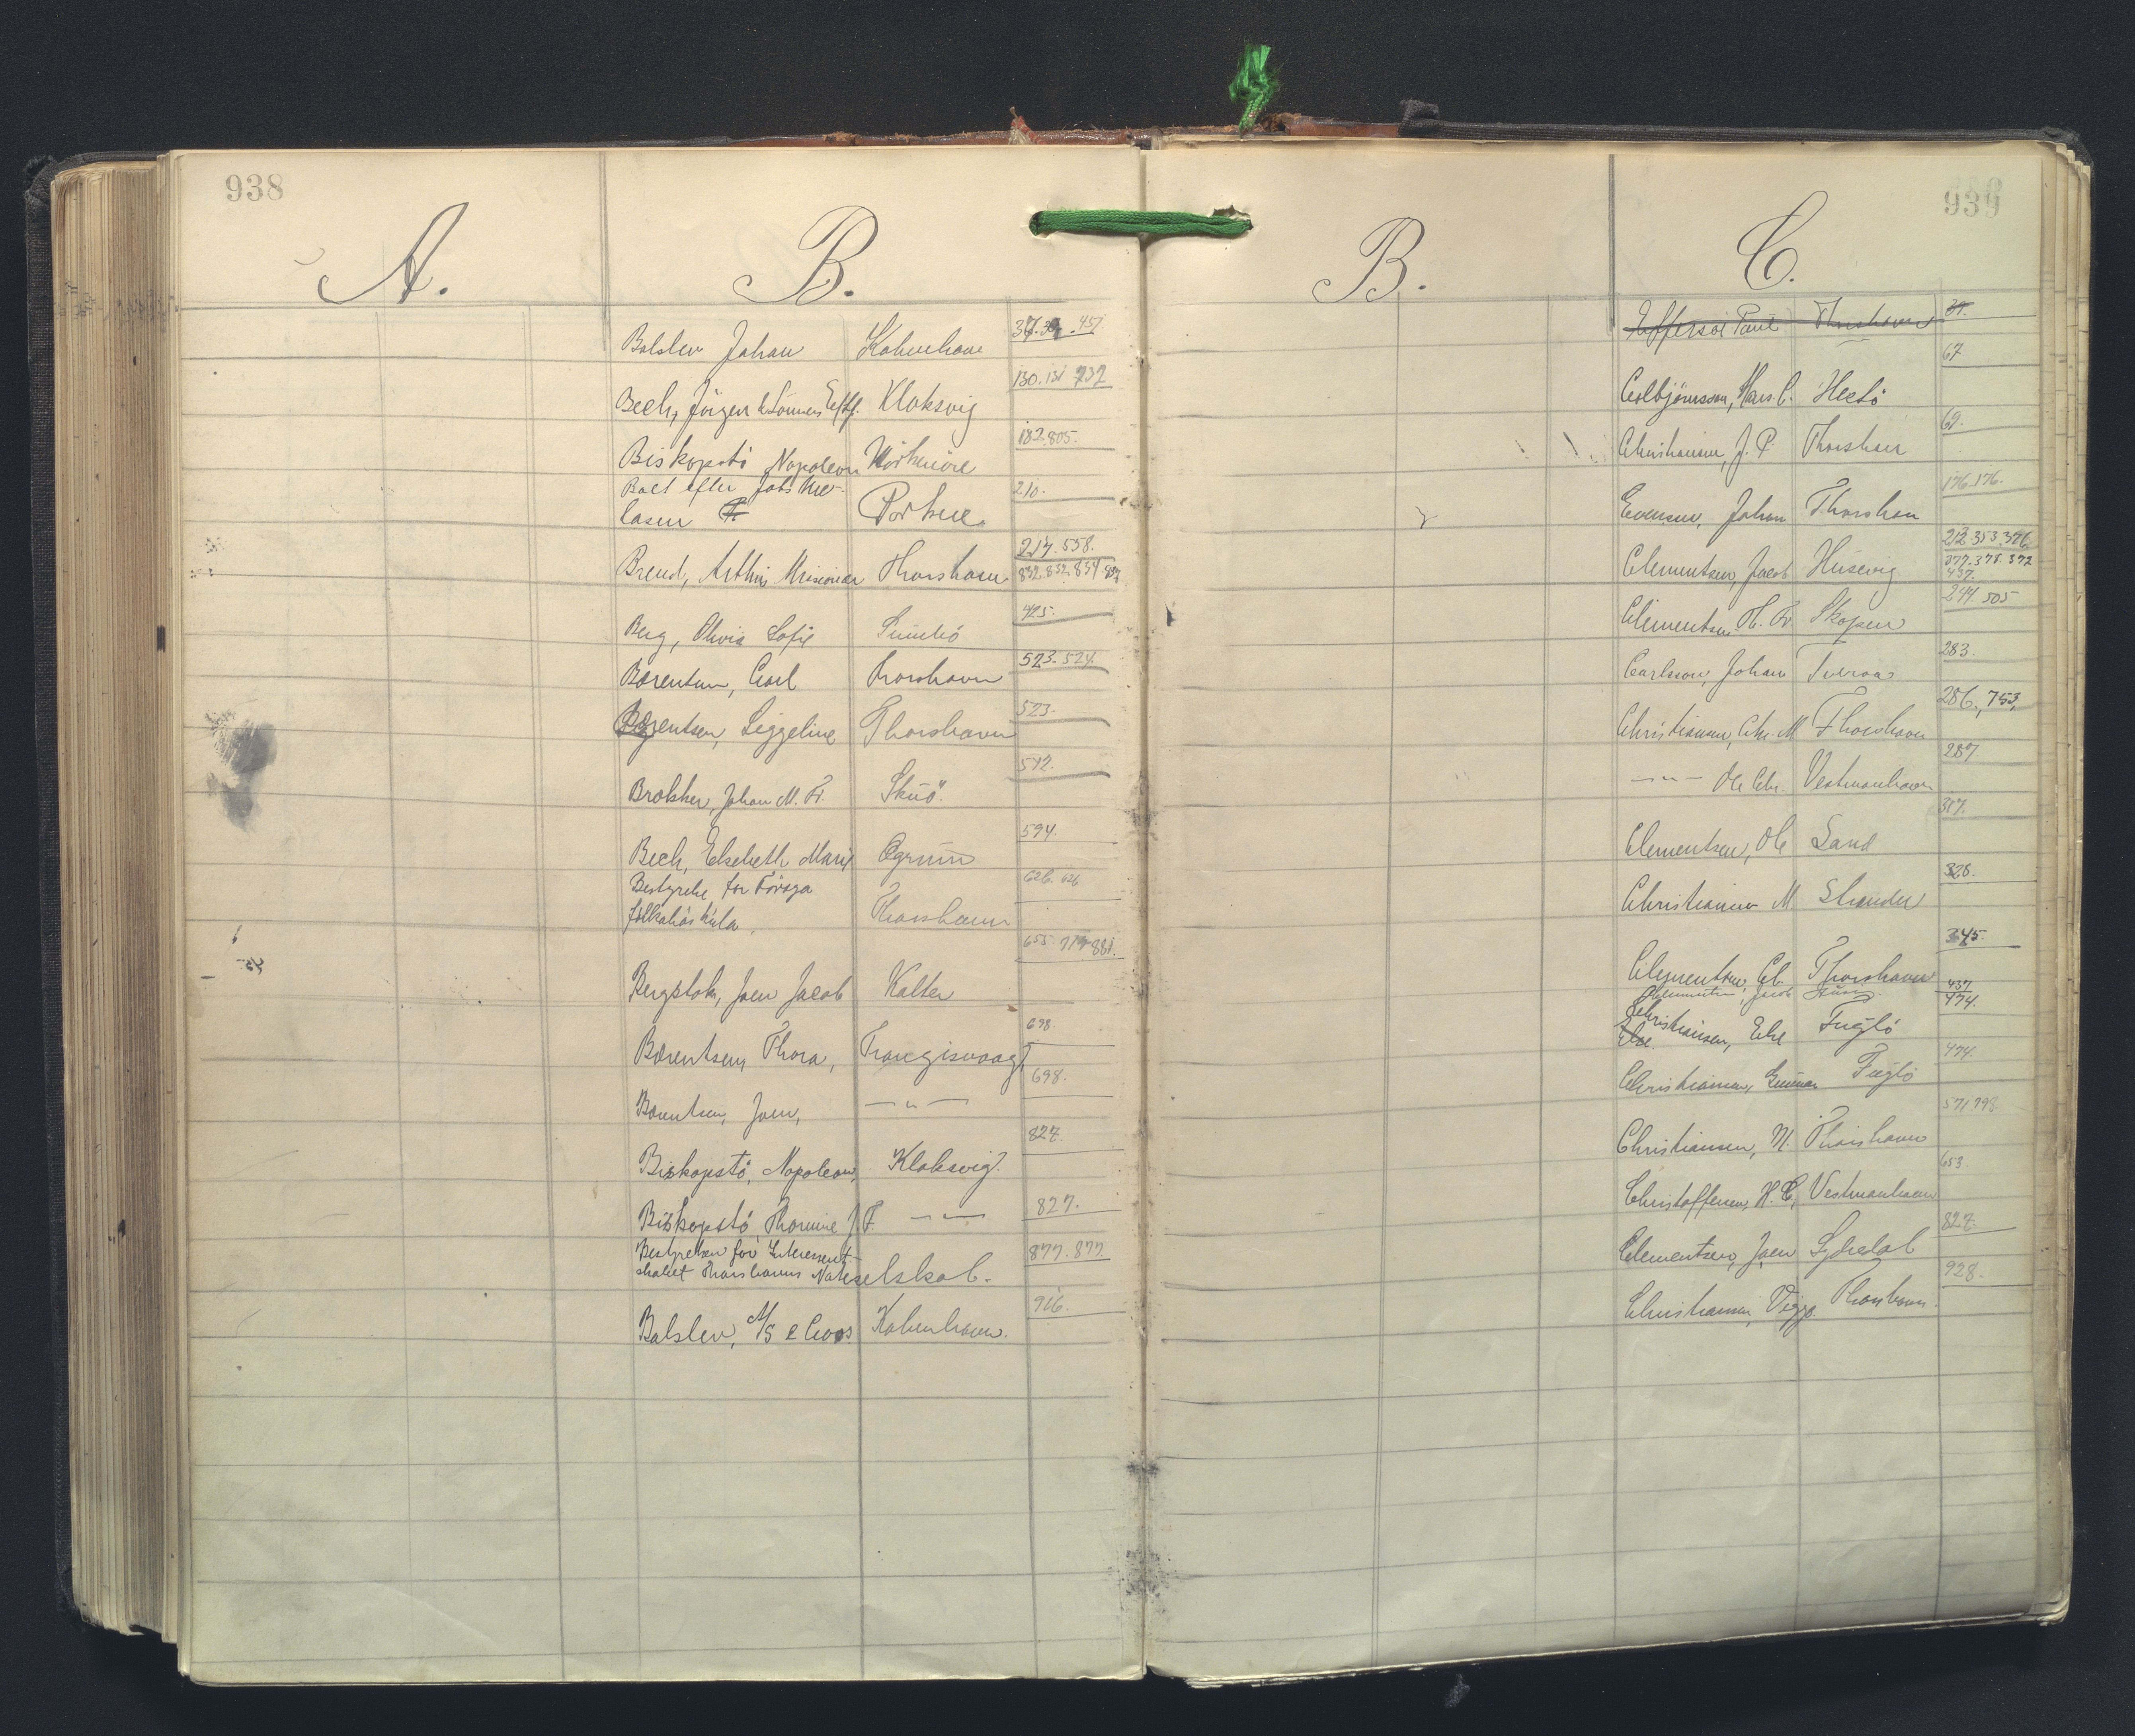 938
A.
B.
Balslev Johan Kabenhavn 37.39.457.
Bech, Jörgen & Sönners Eftf. Klaksvig 130.131 732
Biskopstö Napoleon 182.805.
Boet efter Jobs Nic-
lasen Porkere 210.
Brend, Arthur Missionær Thorshavn 217.558.
832.832.834
Berg, Olivia Sofie Sumbö 425.
Bærentsen, Carl Thorshavn 523.524.
Bærentsen, Siggeline Thorshavn 523.
Brokker, Johan M. Fr. Skuö. 572.
Bech, Elsebeth Marie 594.
Bestyrelse for Föroya
fólkaháskúla, Thorshavn 626.626
Bergstok, Joen Jacob Kolter 655. 881.
Bærentsen, Thora, Trangisvaag 698.
Bærentsen, Joen, —〃— 698.
Biskopstö, Napoleon, Klaksvig. 827.
Biskopstö, Thomine J. F. —〃— 827.
Bestyrelsen for Interessent-
skabet Thorshavns Notselskab. 877.877
Balslev, A/S e Cross Kabenhavn. 916.
939
B.
C.
Paul Thorshavn 31.
Colbjörnsson, Hans C. Hestö 67
Christiansen, J. P. Thorshavn 69.
Evensen, Johan Thorshavn 176.176.
Clementsen, Jacob Husevig 212.353.376
377.378.372
437.
Clementsen H. Fr. Skopen 244.505
Carlsson, Johan Tveraa 283
Christiansen, Chr. M Thorshavn 286., 753,
—〃— Ole Chr. Vestmanhavn 287
Clementsen, Ole Sand 317.
Christiansen M. Strender 328.
Clementsen, Cl. Thorshavn 345.
Clementsen, Jacob Husevig 437
Christiansen, Else Fuglö 474.
Else
Christiansen, Gunnar Fuglö 474
Christiansen, M. Thorshavn 571 798.
Christoffersen, H. C, Vestmanhavn 653
Clementsen, Joen Sydredal 827.
Christiansen, Viggo. Thorshavn. 928.